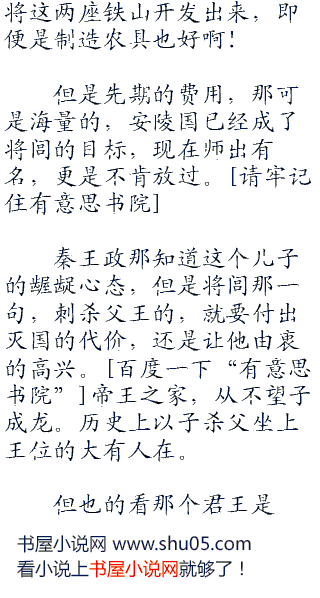 将这两座铁山开发出来，即
便是制造农具也好啊！
但是先期的费用，那可
是海量的，安陵国已经成了
将闾的目标，现在师出有
名，更是不肯放过。[请牢记
住有意思书院]
秦王政那知道这个儿子
的龌龊心态，但是将闾那一
句，刺杀父王的，就要付出
灭国的代价，还是让他由衷
的高兴。[百度一下“有意思
书院”]帝王之家，从不望子
成龙。历史上以子杀父坐上
王位的大有人在。
但也的看那个君王是
书屋小说网 www.shu05.com
看小说上书屋小说网就够了！